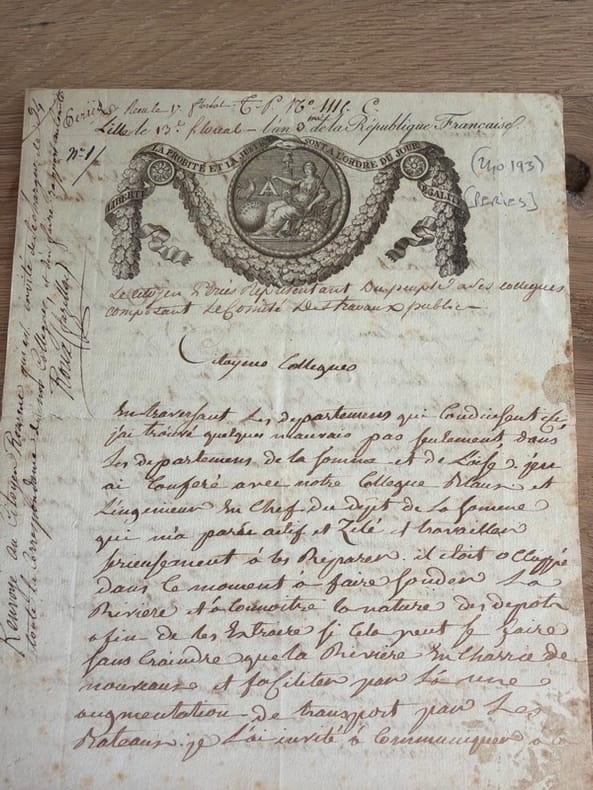 Reçu le 17 floréal T. P. N° 1115 C.
Lille le 13e floréal - l'an 3me de la République Française.
N° 1
LA PROBITÉ ET LA JUSTICE SONT A L'ORDRE DU JOUR
LIBERTÉ
EGALITÉ
(240 193)
[PERIES]
Le citoyen Représentant Du peuple a Ses collegues
composant Le Comité Des travaux public
Citoyens Collegues
En traversant Les departemens qui Conduisent ici
j'ai trouvé quelques mauvais pas seulement dans
Les departemens de la Somme et de L'oise. j'en
ai Conferé avec notre Collegue Blaux et
L'ingenieur En Chef du dept de La Somme
qui m'a paru actif et Zélé et travailler
serieusement à les Reparer. il etoit occuppé
dans le moment à faire sonder La
Riviere et à connoitre la nature des depots
afin de les Extraire si Cela peut se faire
sans Craindre que la Riviere En Charrie de
nouveaux et faciliter par là une
augmentation de transport par Les
Bateaux. je L'ai invité à Communiquer
Renvoié au Citoyen qui est invité de se charger de
toute la Correspondance de nos Collegues, et d'en faire rapport au Comité